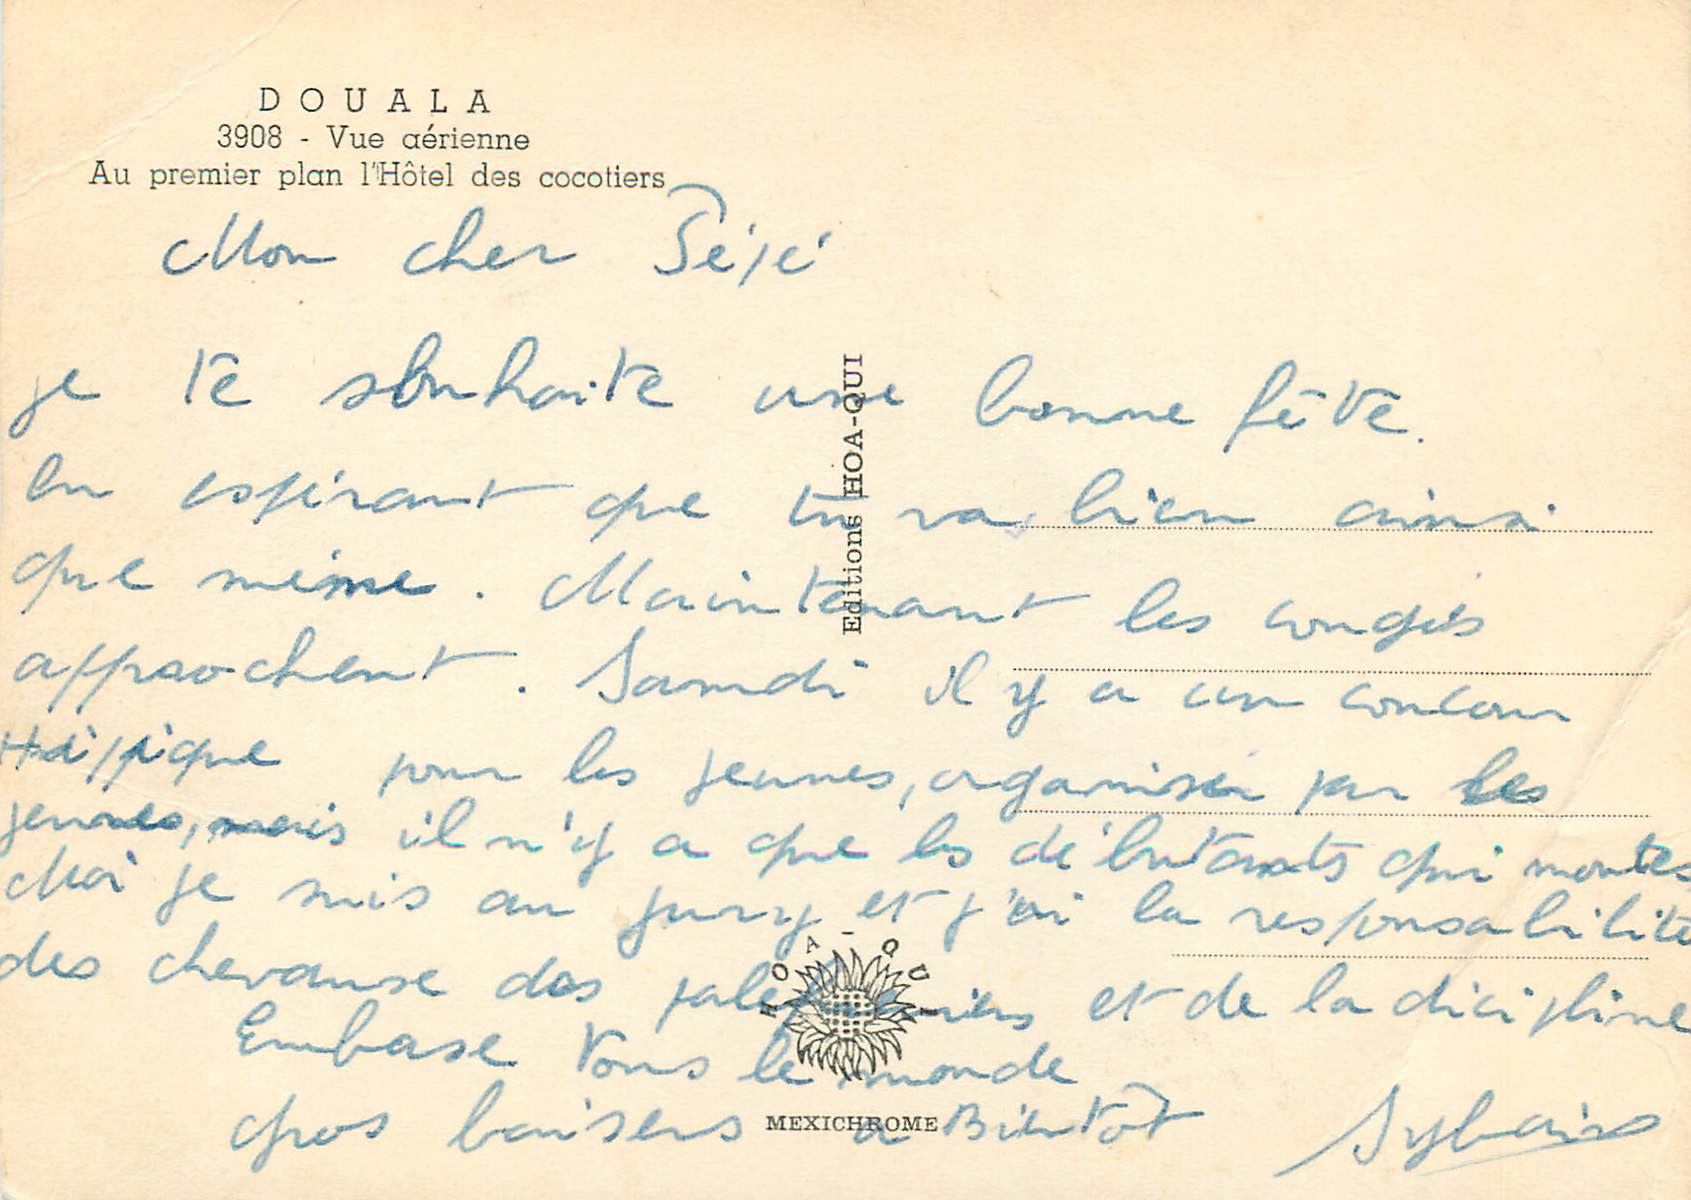 DOUALA
3908 - Vue aérienne
Au premier plan l'Hôtel des cocotiers
Mon cher Jéjé
je te souhaite une bonne fête.
En espérant que tu va bien ainsi
que même. Maintenant les congés
approchent. Samdi il y a un concour
Haippique pour les jeunes, organiser par les
jeunes, mais il n'y a que les débutants qui montes
Moi je suis au jury et j'ai la responsabilité
des chevause des palefreniers et de la dicipline
Embase Tous le monde
gros baisers a Bientôt Sylvain
Editions HOA-QUI
HOA-QUI
MEXICHROME